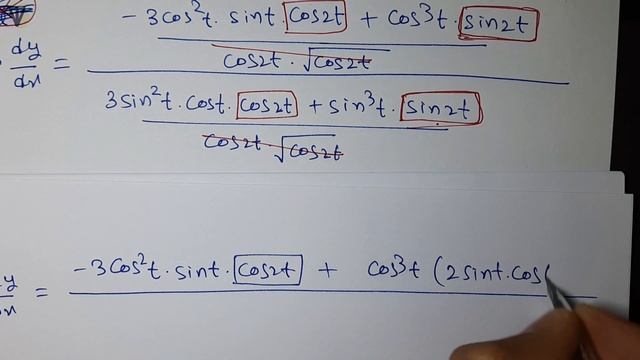 -3cos²t · sint cos2t + cos³t · sin2t
cos2t · √cos2t
dy/dx =
3sin²t · cost · cos2t + sin³t · sin2t
cos2t · √cos2t
-3cos²t · sint · cos2t + cos³t (2sint · cos
=